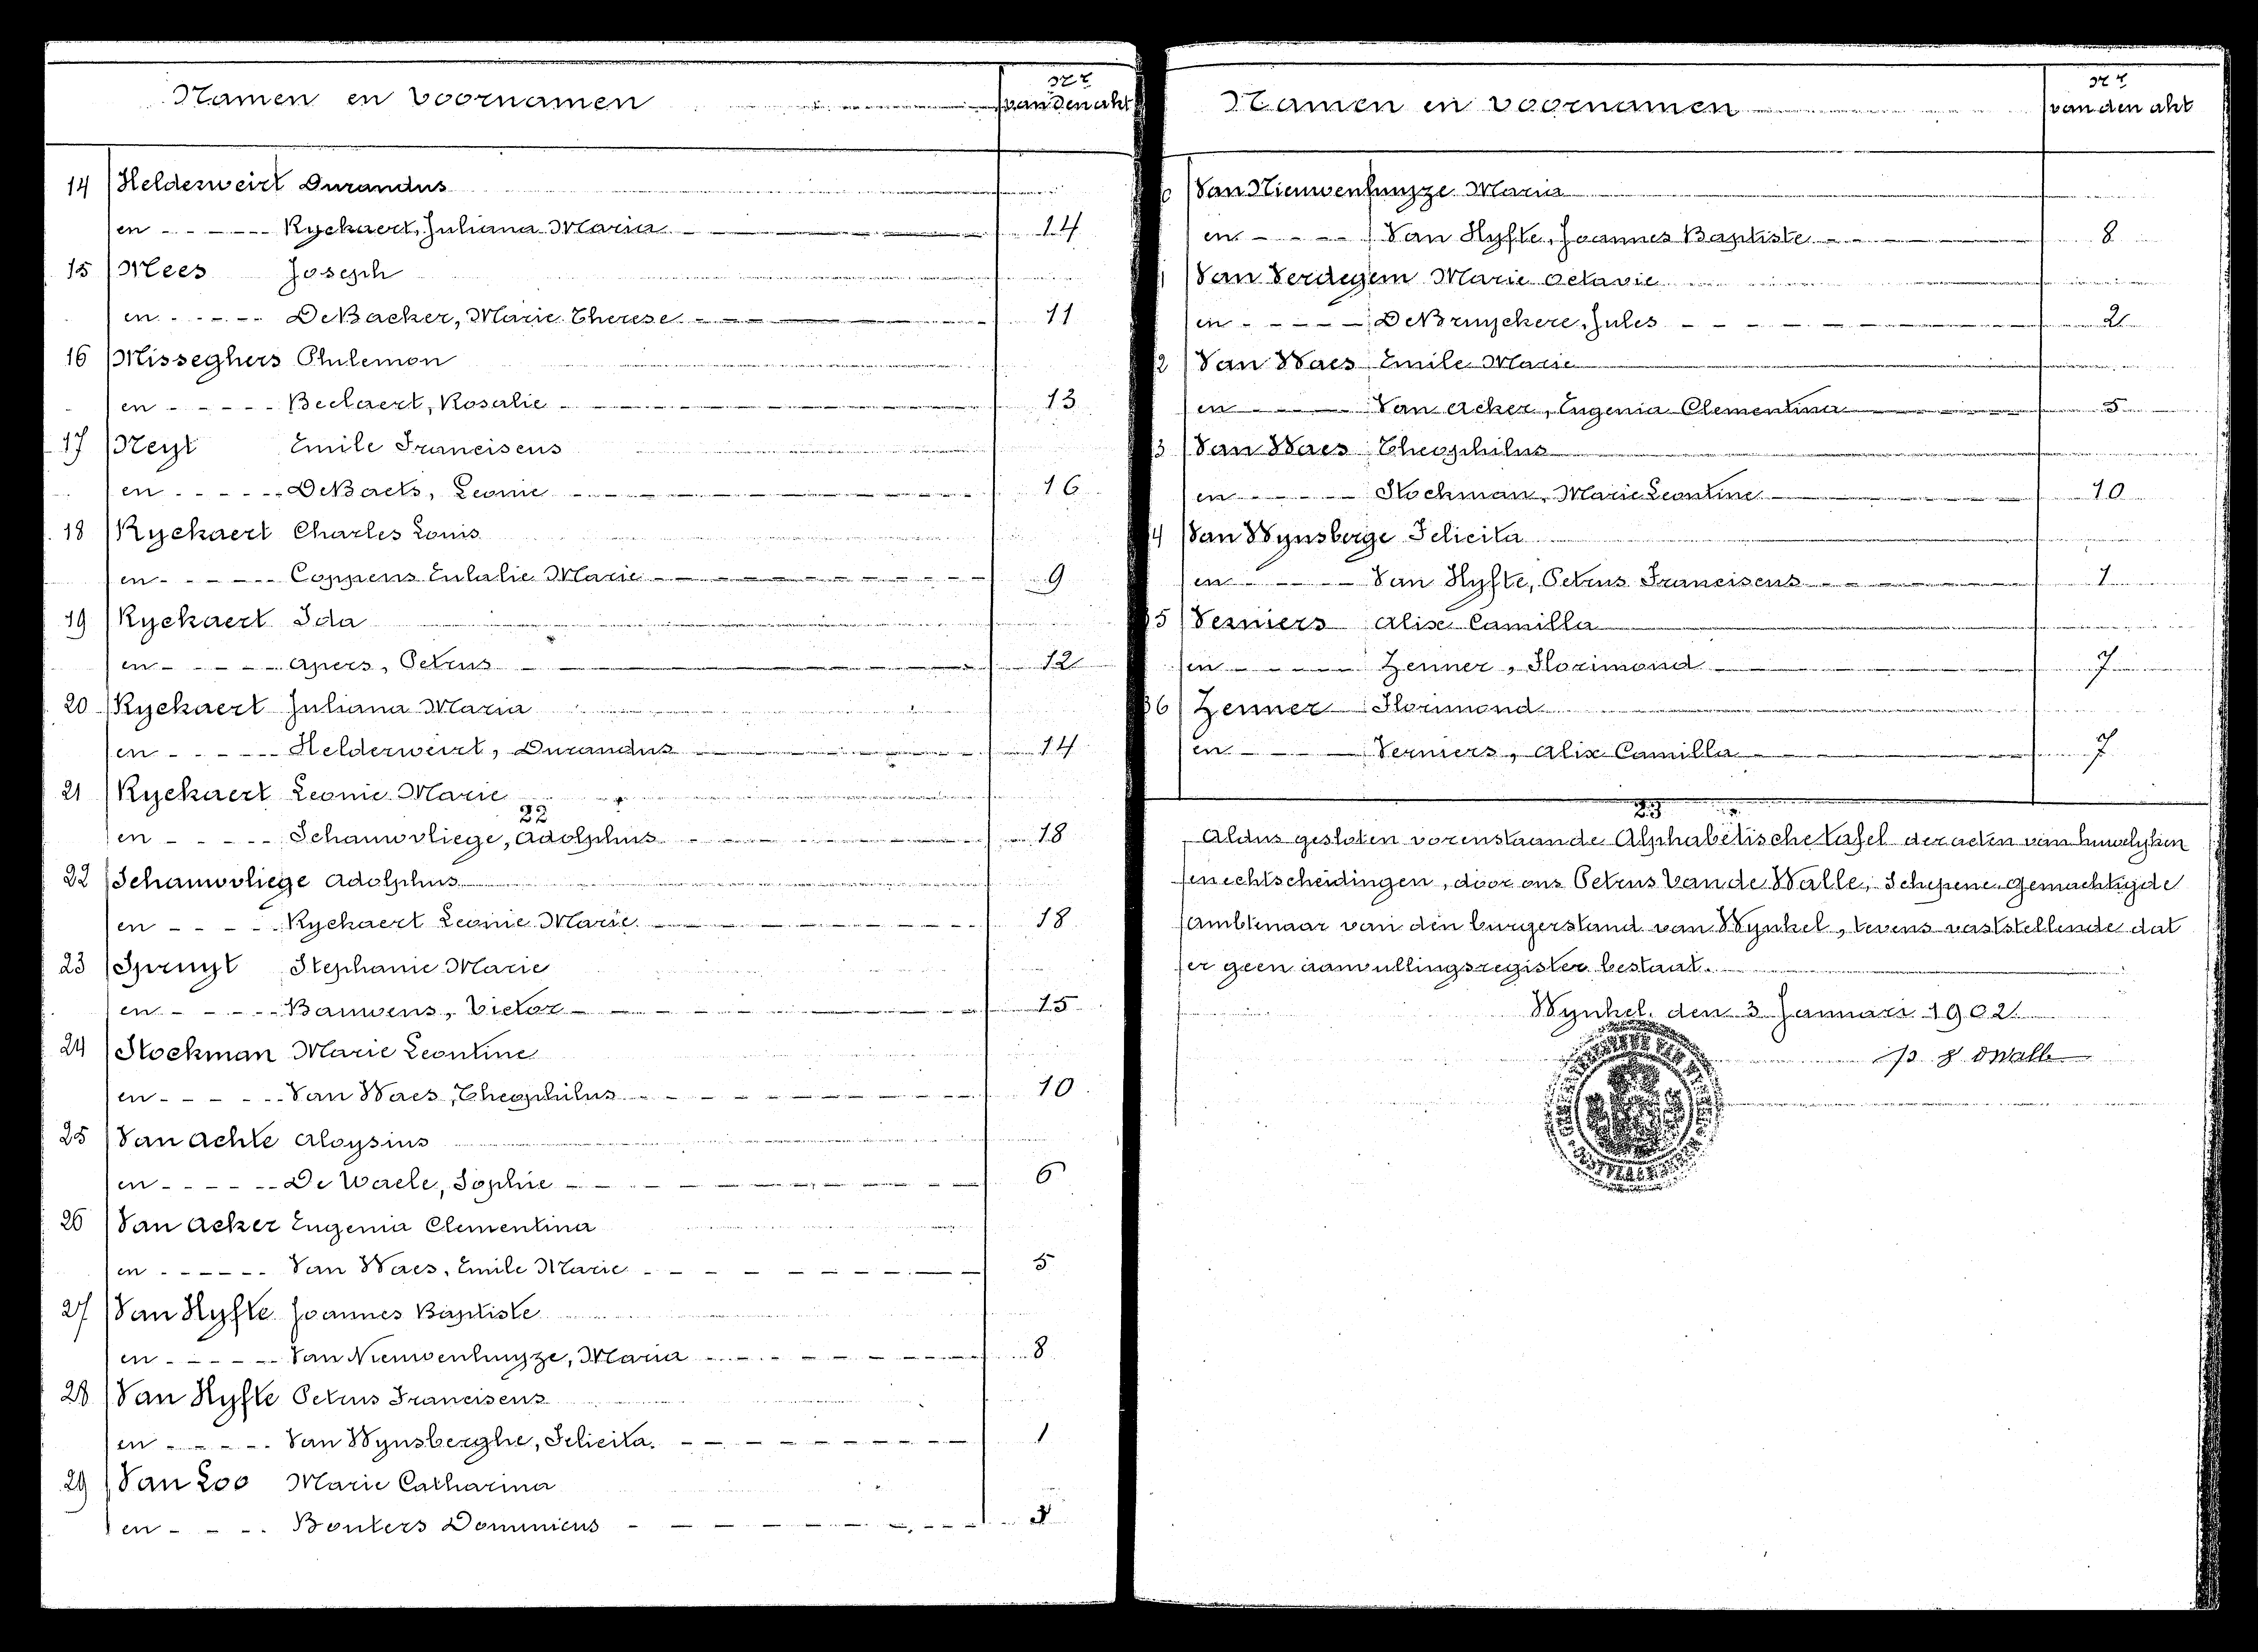 Namen en voornamen Nr van den akt
14 Helderweirt Durandus
en - - - - - Ryckaert, Juliana Maria 14
15 Mees Joseph
en - - - - - De Backer, Marie Therese 11
16 Misseghers Philemon
en - - - - - Beelaert, Rosalie 13
17 Neyt Emile Franciscus
en - - - - - De Baets, Leonie 16
18 Ryckaert Charles Louis
en - - - - - Coppens Eulalie Marie 9
19 Ryckaert Ida
en - - - - - Apers, Petrus 12
20 Ryckaert Juliana Maria
en - - - - - Helderweirt, Durandus 14
21 Ryckaert Leonie Marie
22
en - - - - - Schauwvliege, Adolphus 18
22 Schauwvliege Adolphus
en - - - - - Ryckaert Leonie Marie 18
23 Spruyt Stephanie Marie
en - - - - - Bauwens, Victor 15
24 Stockman Marie Leontine
en - - - - - Van Waes, Theophilus 10
25 Van Achte Aloysius
en - - - - - De Waele, Sophie 6
26 Van Acker Eugenia Clementina
en - - - - - Van Waes, Emile Marie 5
27 Van Hyfte Joannes Baptiste
en - - - - - Van Nieuwenhuyze, Maria 8
28 Van Hyfte Petrus Franciscus
en - - - - - Van Wynsberghe, Felicita. 1
29 Van Loo Marie Catharina
en - - - - Bouters Dominicus 3
Namen en voornamen Nr van den akt
Van Nieuwenhuyze Maria
en - - - - Van Hyfte, Joannes Baptiste 8
Van Verdegem Marie Octavie
en - - - - De Bruyckere, Jules 2
2 Van Waes Emile Marie
en - - - - Van Acker, Eugenia Clementina 5
3 Van Waes Theophilus
en - - - - Stockman, Marie Leontine 10
4 Van Wynsberge Felicita
en - - - - Van Hyfte, Petrus Franciscus 1
5 Verniers Alix Camilla
en - - - - Zenner, Florimond 7
36 Zenner Florimond
en - - - - Verniers, Alix Camilla 7
23
Aldus gesloten vorenstaande Alphabetische tafel der acten van huwelyken
en echtscheidingen, door ons Petrus Van de Walle, Schepene gemachtigde
Ambtenaar van den burgerstand van Wynkel, tevens vaststellende dat
er geen aanvullingsregister bestaat.
Wynkel, den 3 Januari 1902